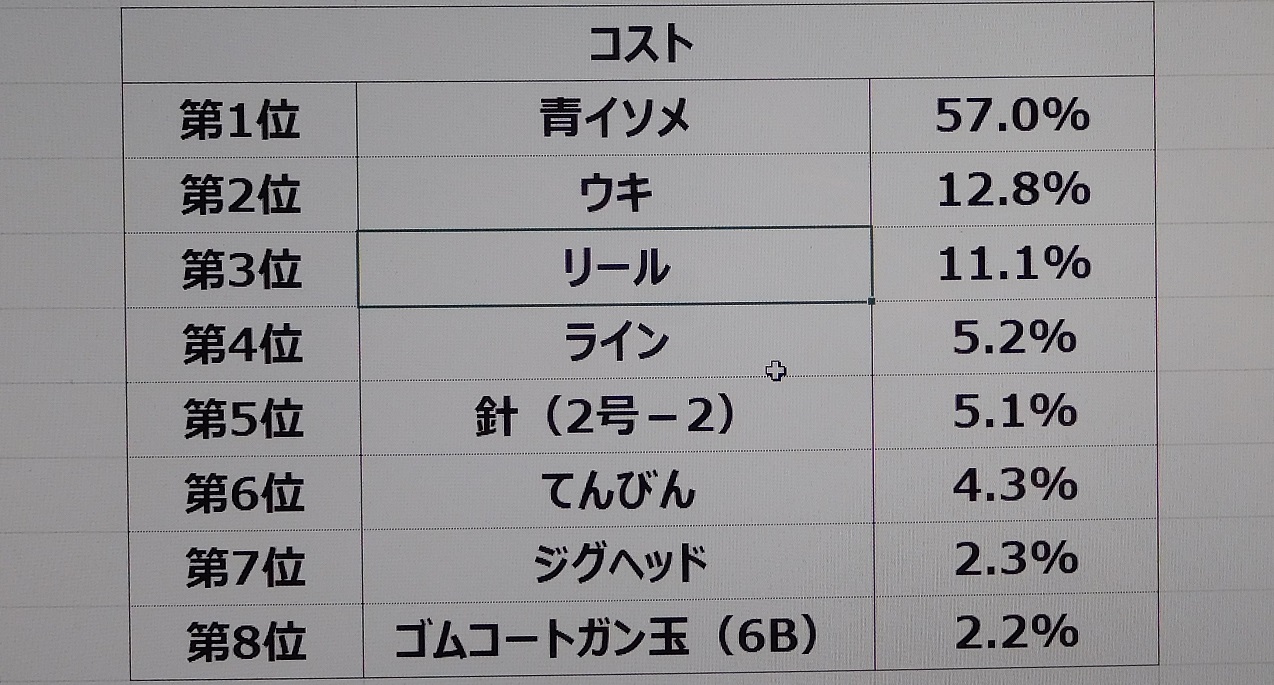 コスト
第1位 青イソメ 57.0%
第2位 ウキ 12.8%
第3位 リール 11.1%
第4位 ライン 5.2%
第5位 針（2号－2） 5.1%
第6位 てんびん 4.3%
第7位 ジグヘッド 2.3%
第8位 ゴムコートガン玉（6B） 2.2%